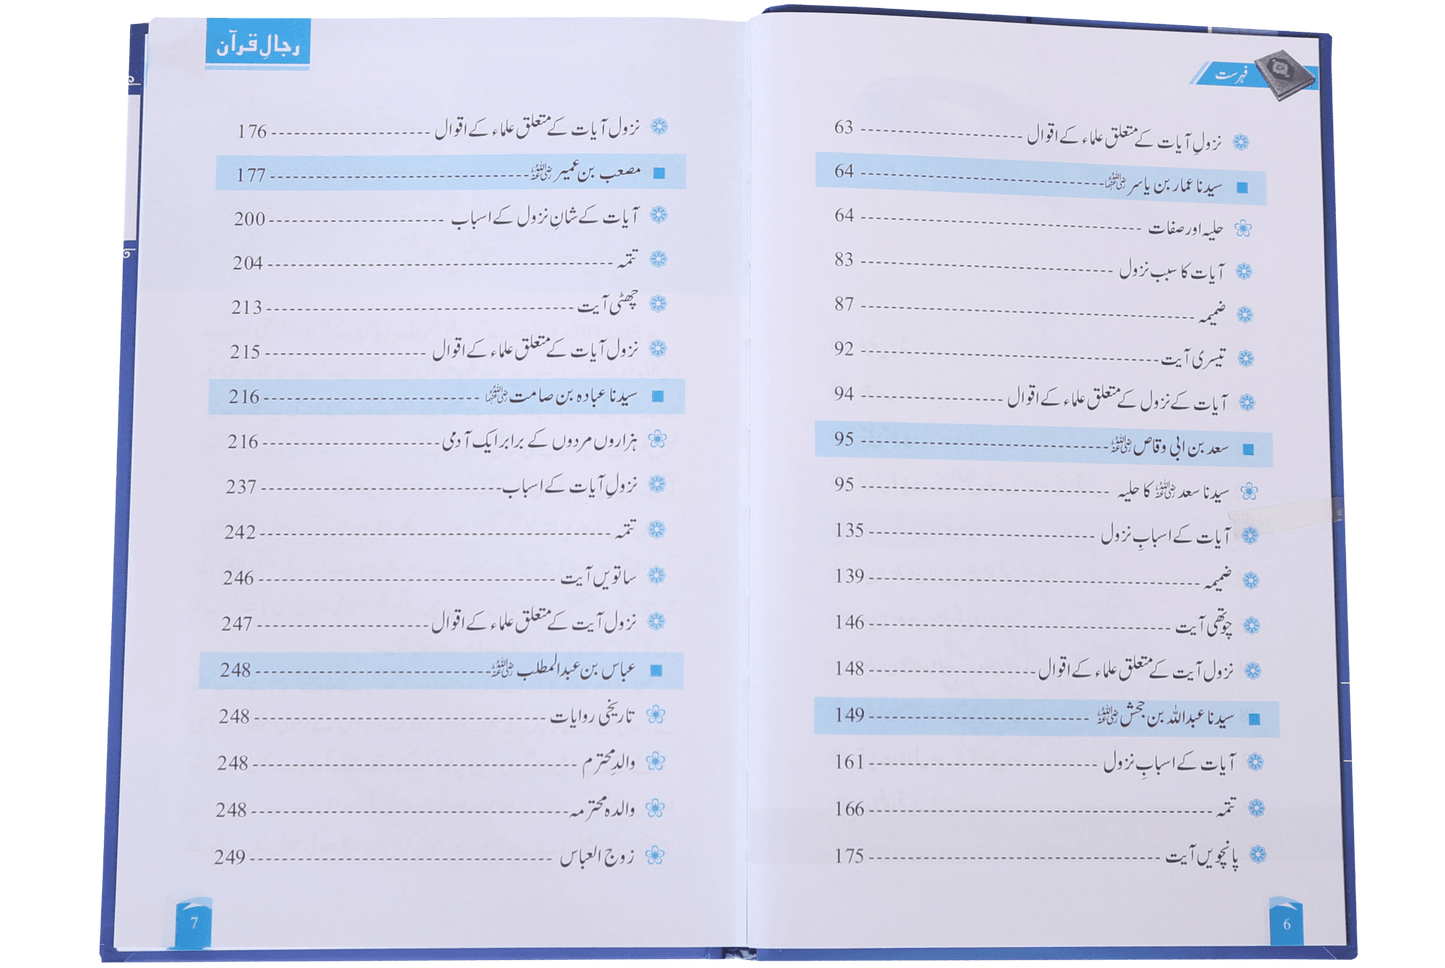 فہرست
نزولِ آیات کے متعلق علماء کے اقوال ---------------------- 63
سیدنا عمار بن یاسر رضی اللہ عنہما ---------------------- 64
حلیہ اور صفات ---------------------- 64
آیات کا سبب نزول ---------------------- 83
ضمیمہ ---------------------- 87
تیسری آیت ---------------------- 92
آیات کے نزول کے متعلق علماء کے اقوال ---------------------- 94
سعد بن ابی وقاص رضی اللہ عنہ ---------------------- 95
سیدنا سعد رضی اللہ عنہ کا حلیہ ---------------------- 95
آیات کے اسبابِ نزول ---------------------- 135
ضمیمہ ---------------------- 139
چوتھی آیت ---------------------- 146
نزول آیت کے متعلق علماء کے اقوال ---------------------- 148
سیدنا عبداللہ بن جحش رضی اللہ عنہ ---------------------- 149
آیات کے اسبابِ نزول ---------------------- 161
تتمہ ---------------------- 166
پانچویں آیت ---------------------- 175
6
رجالِ قرآن
نزول آیات کے متعلق علماء کے اقوال ---------------------- 176
مصعب بن عمیر رضی اللہ عنہ ---------------------- 177
آیات کے شانِ نزول کے اسباب ---------------------- 200
تتمہ ---------------------- 204
چھٹی آیت ---------------------- 213
نزول آیات کے متعلق علماء کے اقوال ---------------------- 215
سیدنا عبادہ بن صامت رضی اللہ عنہما ---------------------- 216
ہزاروں مردوں کے برابر ایک آدمی ---------------------- 216
نزولِ آیات کے اسباب ---------------------- 237
تتمہ ---------------------- 242
ساتویں آیت ---------------------- 246
نزول آیت کے متعلق علماء کے اقوال ---------------------- 247
عباس بن عبدالمطلب رضی اللہ عنہ ---------------------- 248
تاریخی روایات ---------------------- 248
والدِ محترم ---------------------- 248
والدہ محترمہ ---------------------- 248
زوج العباس ---------------------- 249
7